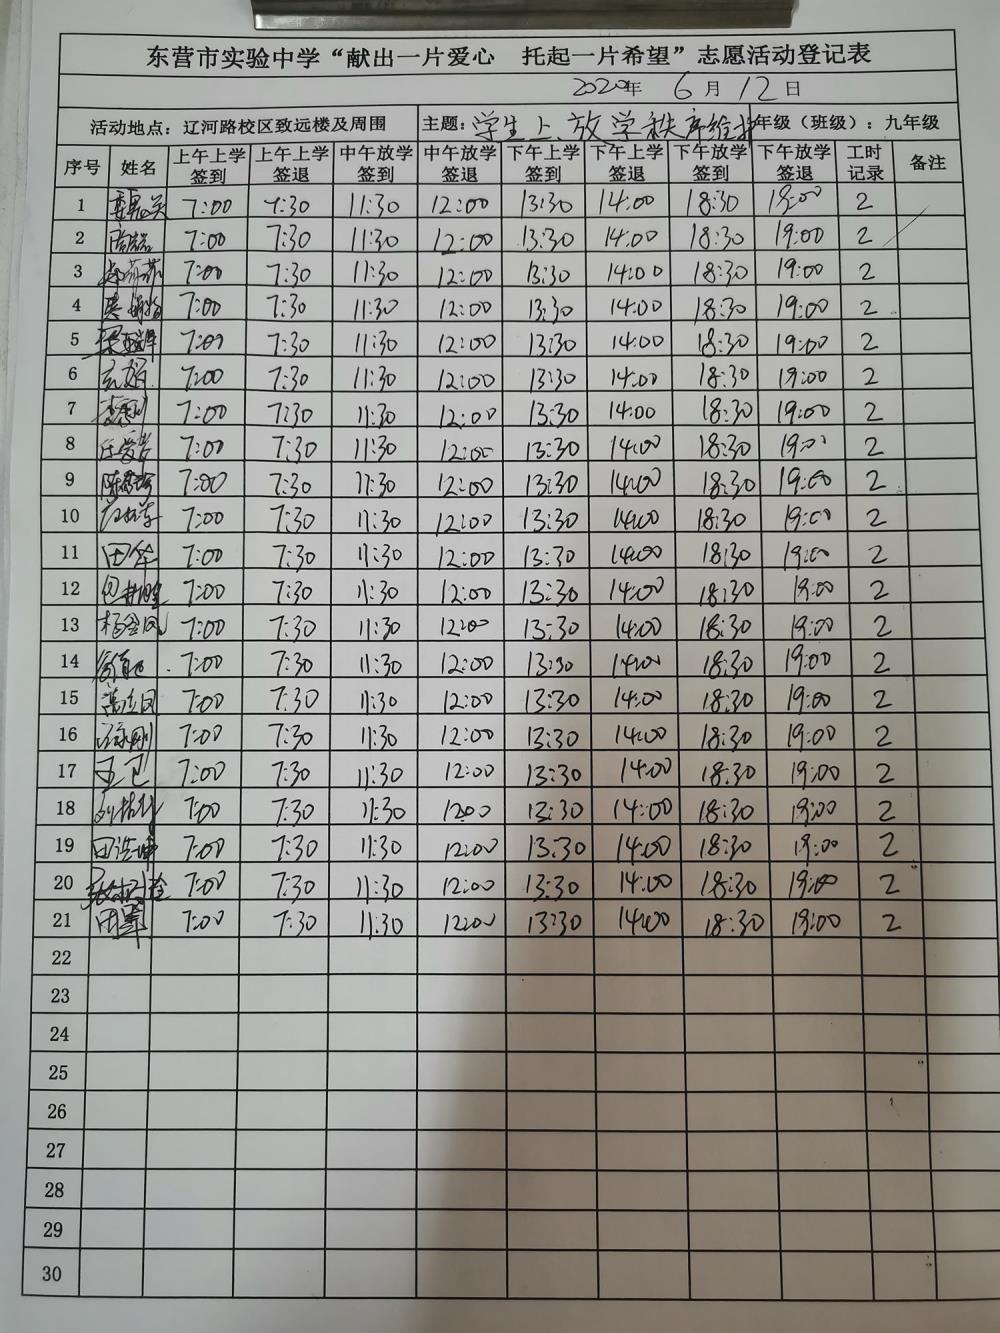 东营市实验中学“献出一片爱心 托起一片希望”志愿活动登记表
2020年 6月12日
活动地点：辽河路校区致远楼及周围 主题：学生上、放学秩序维护 年级（班级）：九年级
序号 姓名 上午上学签到 上午上学签退 中午放学签到 中午放学签退 下午上学签到 下午上学签退 下午放学签到 下午放学签退 工时记录 备注
1 7:00 7:30 11:30 12:00 13:30 14:00 18:30 19:00 2
2 7:00 7:30 11:30 12:00 13:30 14:00 18:30 19:00 2
3 7:00 7:30 11:30 12:00 13:30 14:00 18:30 19:00 2
4 7:00 7:30 11:30 12:00 13:30 14:00 18:30 19:00 2
5 7:00 7:30 11:30 12:00 13:30 14:00 18:30 19:00 2
6 7:00 7:30 11:30 12:00 13:30 14:00 18:30 19:00 2
7 7:00 7:30 11:30 12:00 13:30 14:00 18:30 19:00 2
8 任爱芳 7:00 7:30 11:30 12:00 13:30 14:00 18:30 19:00 2
9 7:00 7:30 11:30 12:00 13:30 14:00 18:30 19:00 2
10 7:00 7:30 11:30 12:00 13:30 14:00 18:30 19:00 2
11 田华 7:00 7:30 11:30 12:00 13:30 14:00 18:30 19:00 2
12 7:00 7:30 11:30 12:00 13:30 14:00 18:30 19:00 2
13 杨金凤 7:00 7:30 11:30 12:00 13:30 14:00 18:30 19:00 2
14 7:00 7:30 11:30 12:00 13:30 14:00 18:30 19:00 2
15 7:00 7:30 11:30 12:00 13:30 14:00 18:30 19:00 2
16 7:00 7:30 11:30 12:00 13:30 14:00 18:30 19:00 2
17 王卫 7:00 7:30 11:30 12:00 13:30 14:00 18:30 19:00 2
18 7:00 7:30 11:30 12:00 13:30 14:00 18:30 19:00 2
19 田浩坤 7:00 7:30 11:30 12:00 13:30 14:00 18:30 19:00 2
20 7:00 7:30 11:30 12:00 13:30 14:00 18:30 19:00 2
21 7:00 7:30 11:30 12:00 13:30 14:00 18:30 19:00 2
22
23
24
25
26
27
28
29
30